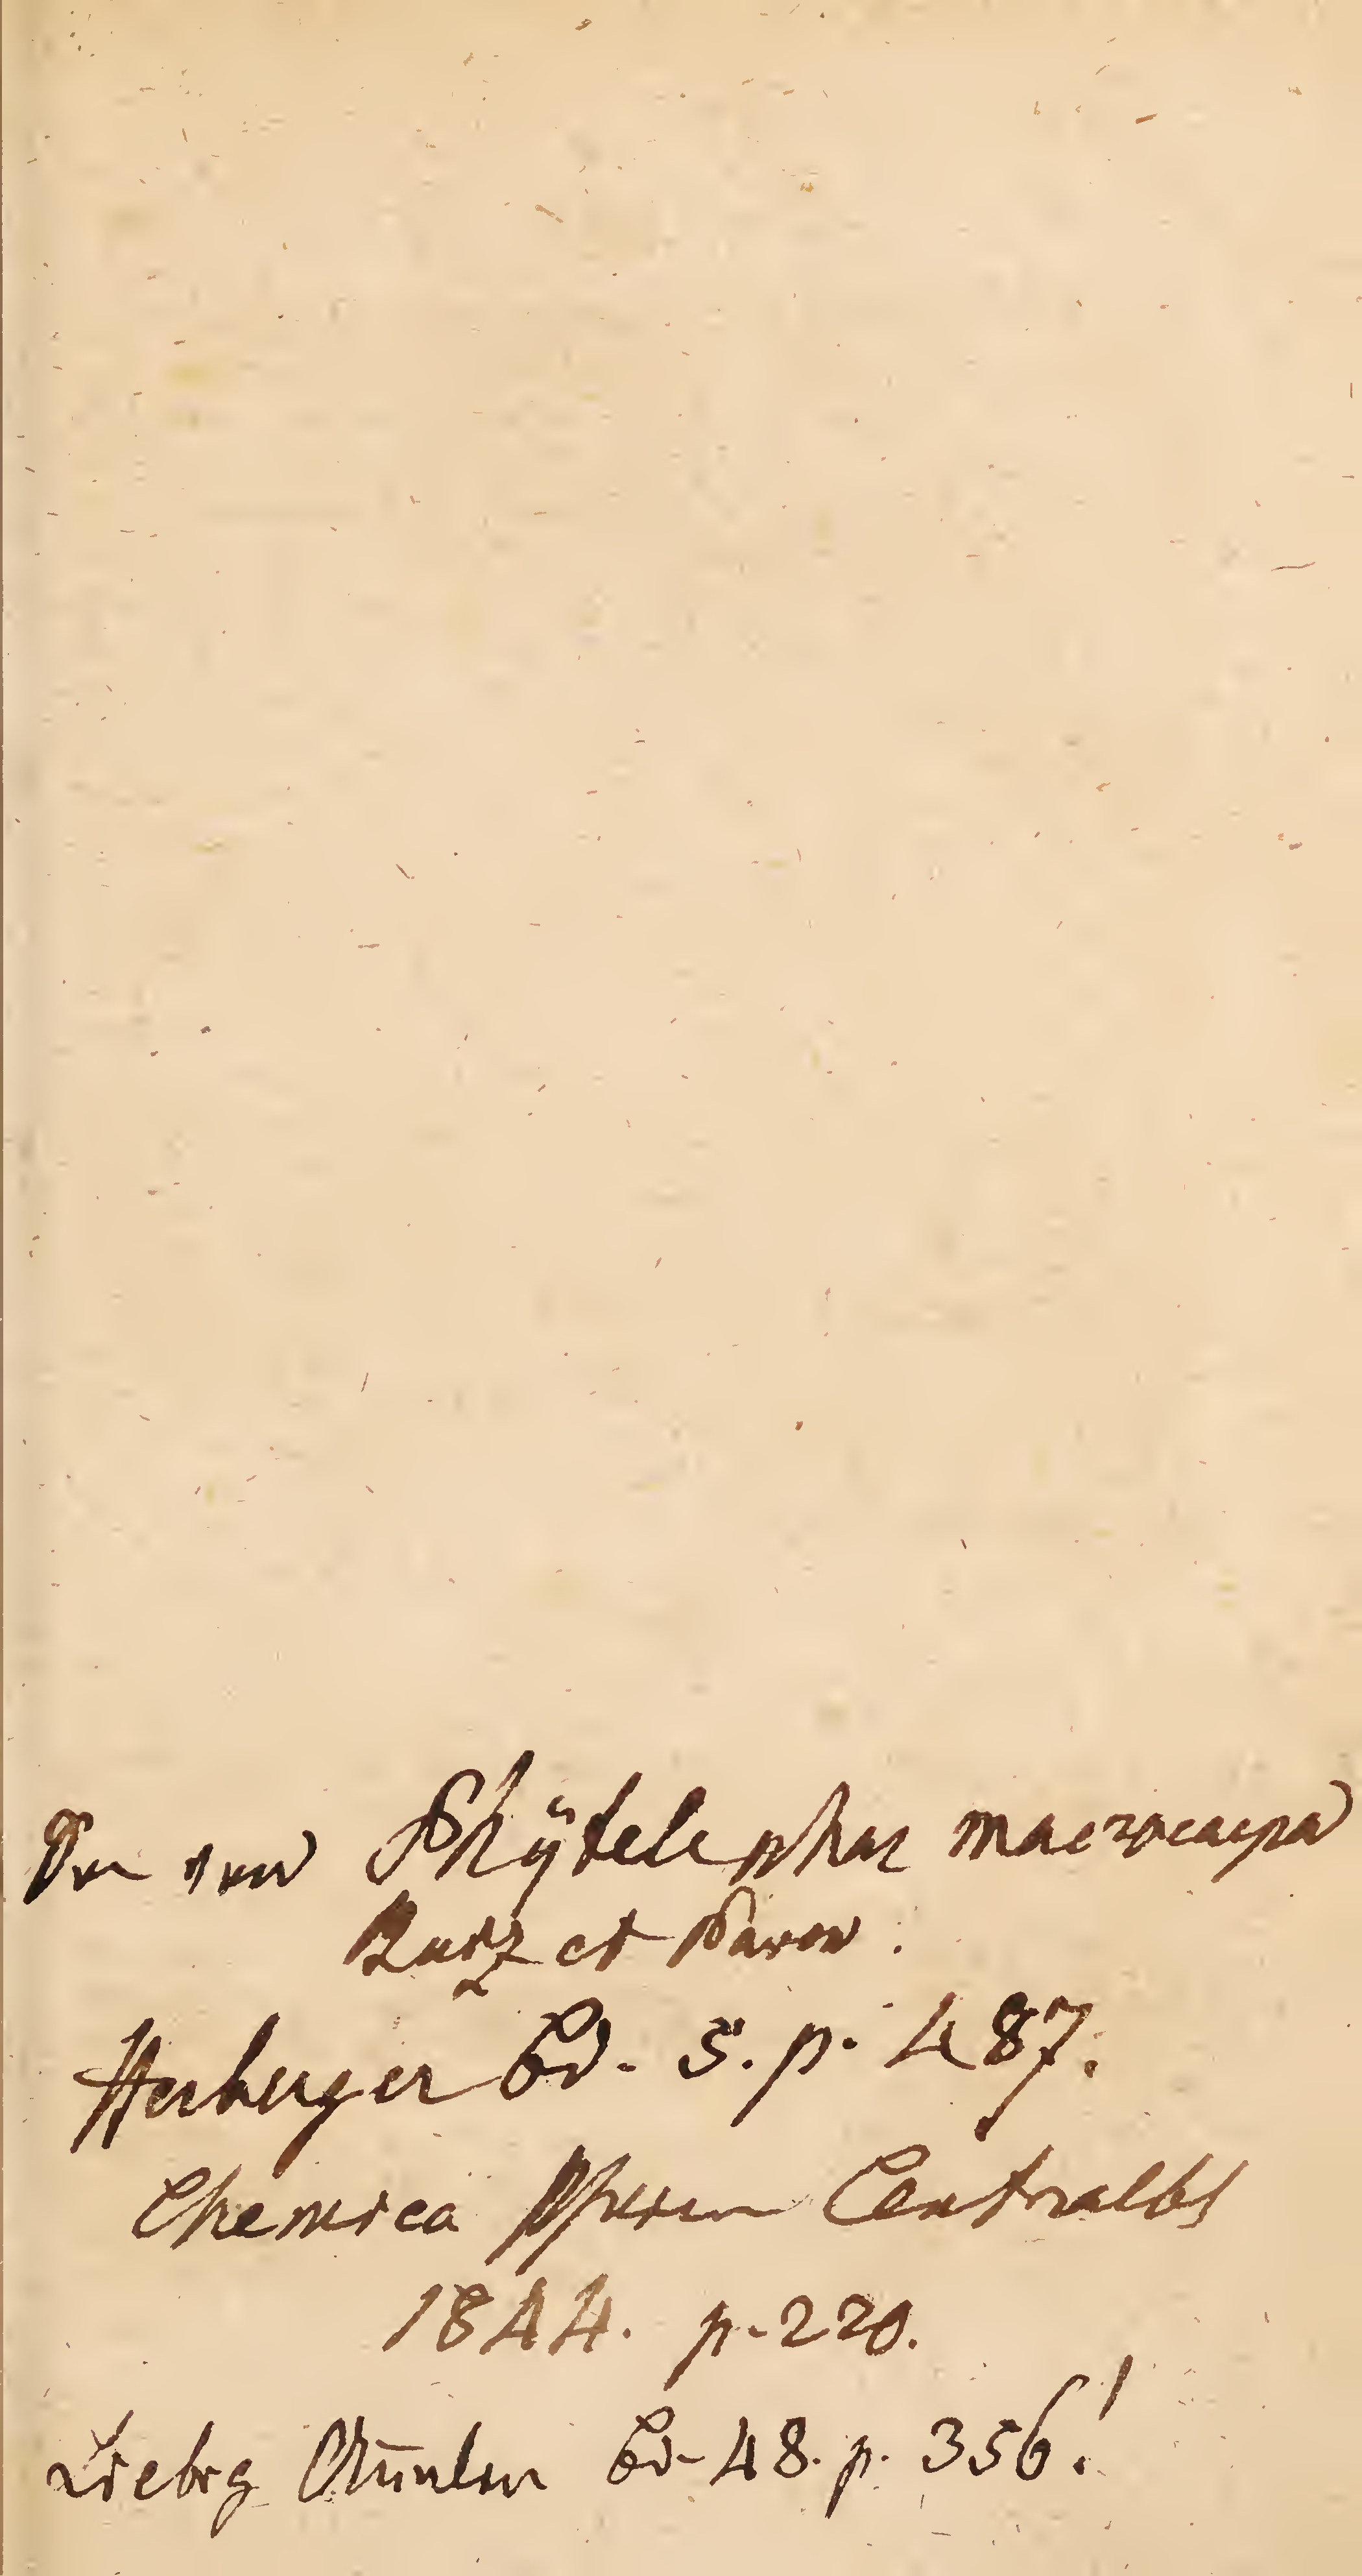 Phÿtelephas macrocarpa
Ruiz et Pavon.
Herberger Bd. 5. p. 487.
Chemica Pharm Centralbl
1844. p. 220.
Liebig Annalen Bd. 48. p. 356!